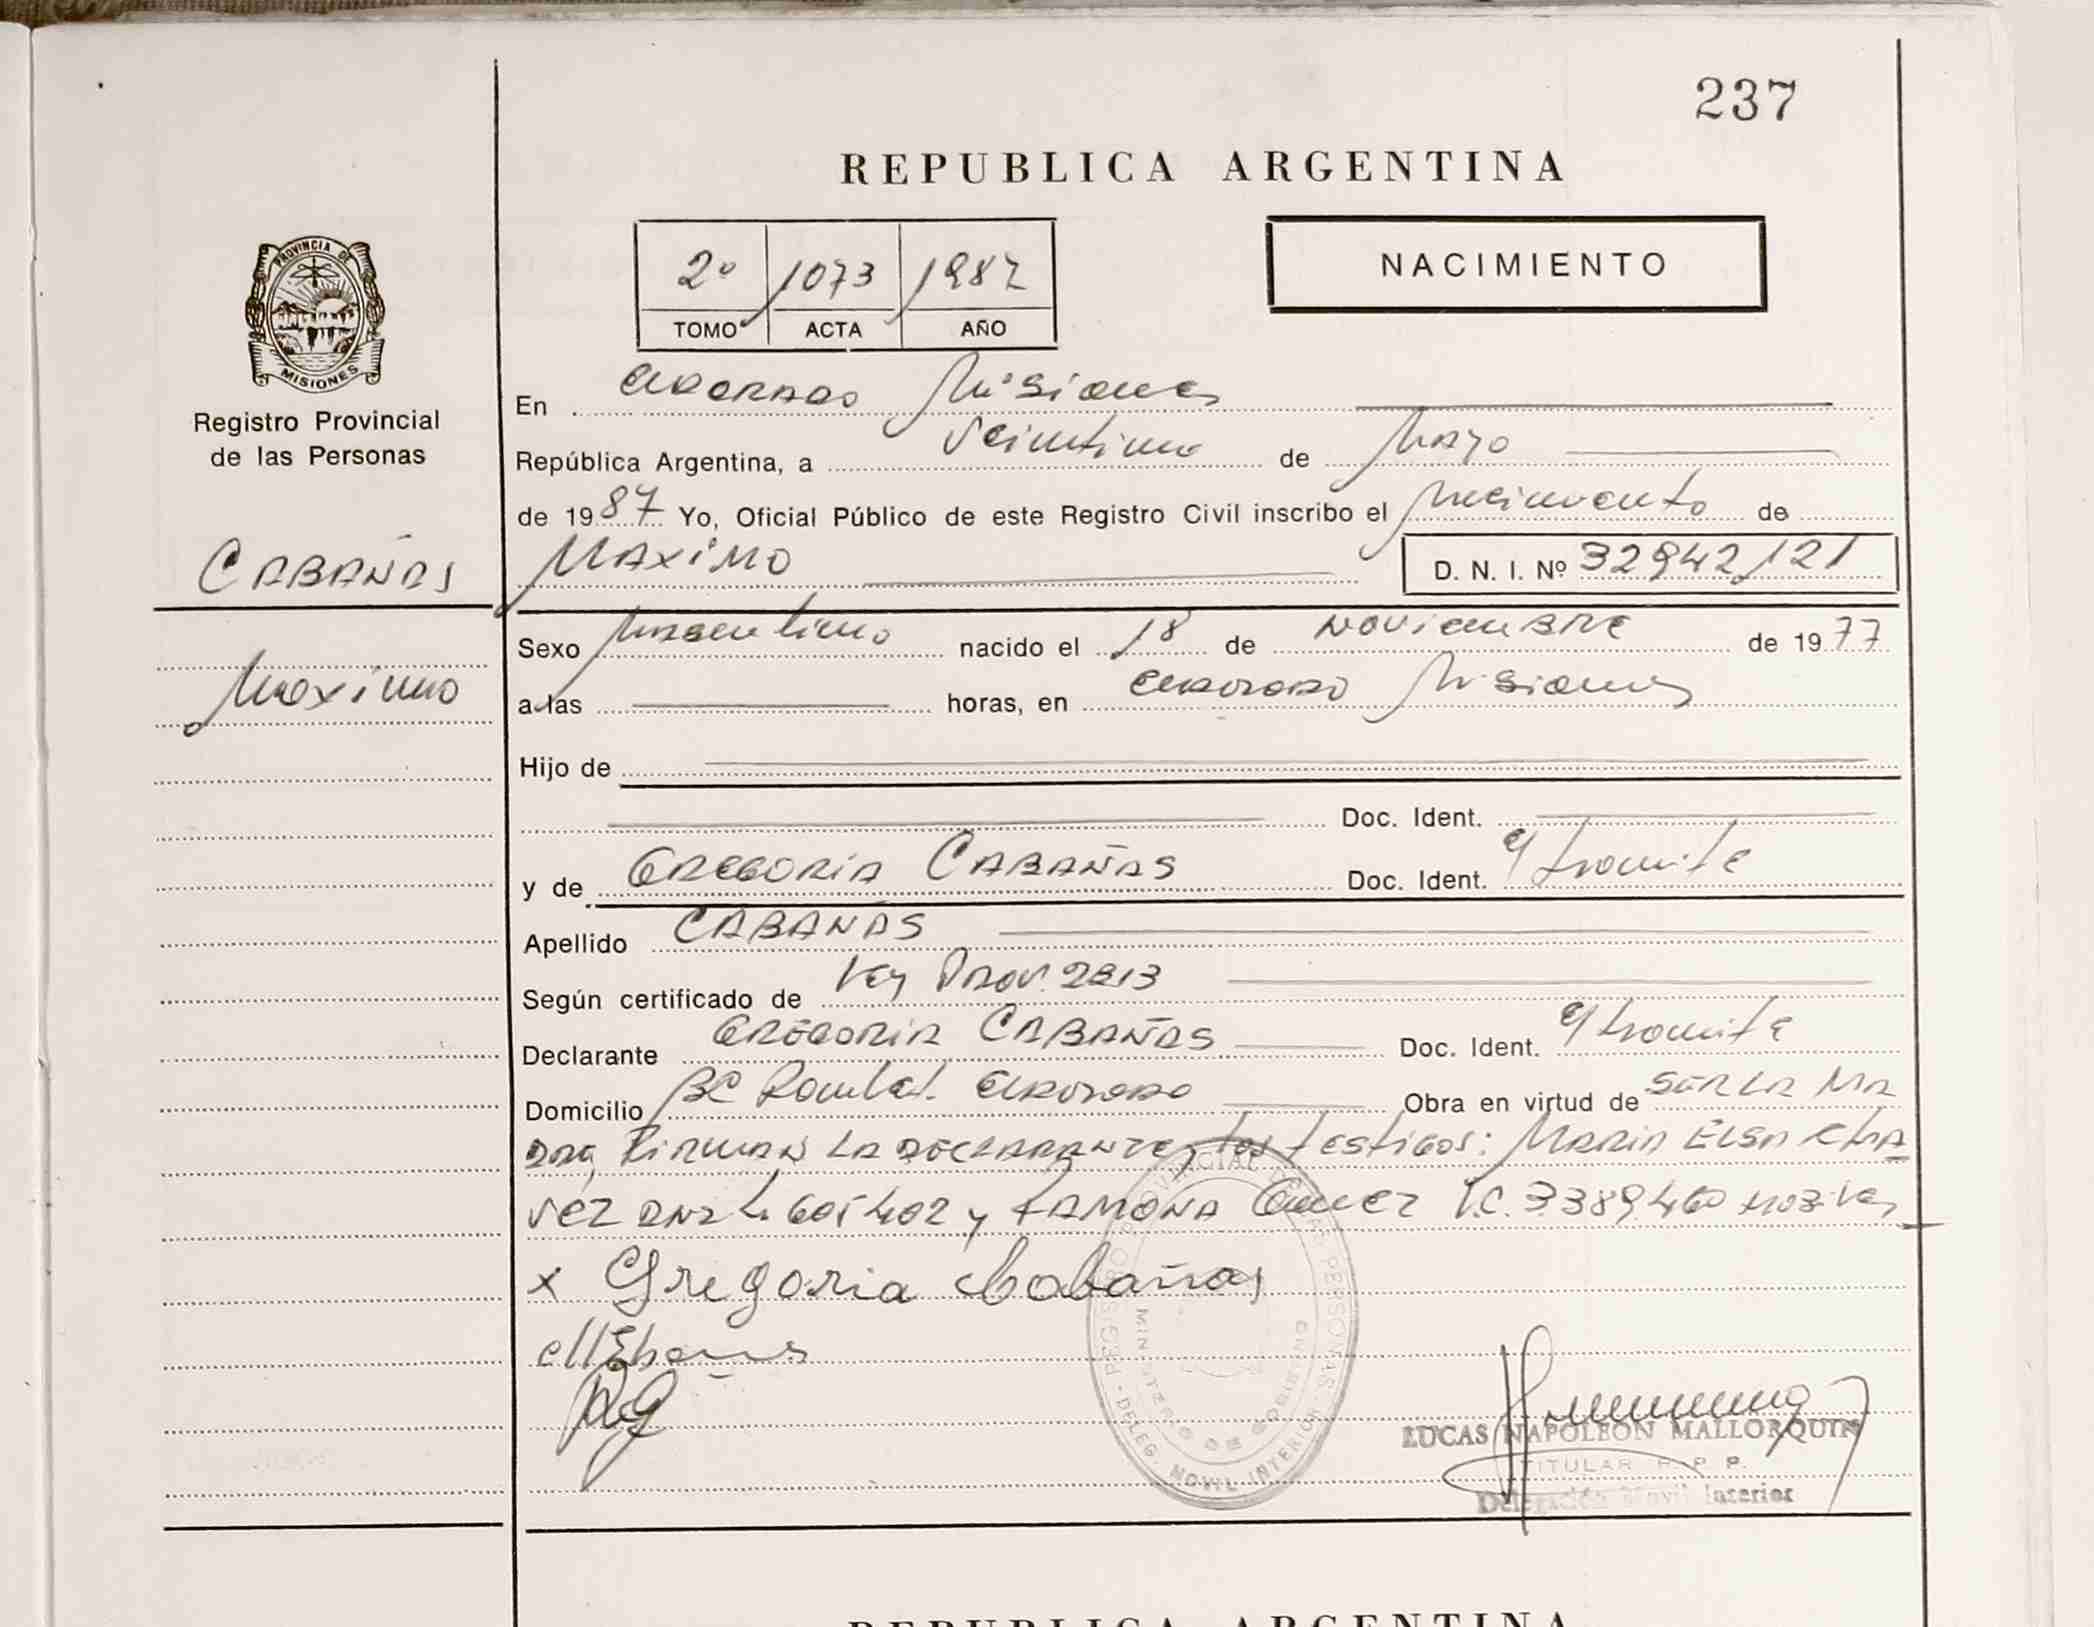 237
REPUBLICA ARGENTINA
2º 1073 1987
TOMO ACTA AÑO
NACIMIENTO
PROVINCIA DE
MISIONES
Registro Provincial
de las Personas
CABAÑAS
Maximo
En Eldorado Misiones
República Argentina, a veintiuno de Mayo
de 1987 Yo, Oficial Público de este Registro Civil inscribo el Nacimiento de
MAXIMO D. N. I. Nº 32942121
Sexo Masculino nacido el 18 de NOVIEMBRE de 1977
a las horas, en Eldorado Misiones
Hijo de
Doc. Ident.
y de GREGORIA CABAÑAS Doc. Ident. e/ tramite
Apellido CABAÑAS
Según certificado de Ley Prov. 2813
Declarante GREGORIA CABAÑAS Doc. Ident. e/ tramite
Domicilio Eldorado Obra en virtud de SER LA MA
DRE, Firman LA DECLARANTE y los testigos: MARIA ELSA CHA
VEZ y RAMONA Gomez
x Gregoria Cabañas
REGISTRO PROVINCIAL DE LAS PERSONAS
MINISTERIO DE GOBIERNO
DELEG. MOVIL INTERIOR
LUCAS NAPOLEON MALLORQUIN
TITULAR R. P. P.
Delegación Movil Interior
REPUBLICA ARGENTINA